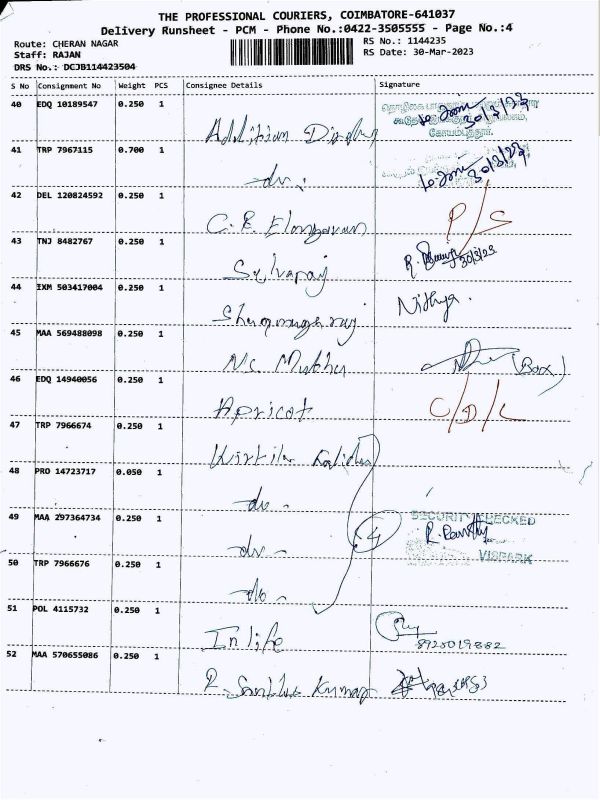 THE PROFESSIONAL COURIERS, COIMBATORE-641037
Delivery Runsheet - PCM - Phone No.:0422-3505555 - Page No.:4
Route: CHERAN NAGAR RS No.: 1144235
Staff: RAJAN RS Date: 30-Mar-2023
DRS No.: DCJB114423504
S No Consignment No Weight PCS Consignee Details Signature
40 EDQ 10189547 0.250 1
30/3/23
கோயம்புத்தூர்.
41 TRP 7967115 0.700 1
30/3/23
do
42 DEL 120824592 0.250 1
P/S
43 TNJ 8482767 0.250 1
Selvaraj 30/3/23
44 IXM 503417004 0.250 1 Nithya.
Shanmugaraj
45 MAA 569488098 0.250 1
Ms. Muthu (Box)
46 EDQ 14940056 0.250 1
Apricot C/D/L
47 TRP 7966674 0.250 1
48 PRO 14723717 0.050 1
do
49 MAA 297364734 0.250 1 SECURITY CHECKED
do 4
VISPARK
50 TRP 7966676 0.250 1
do
51 POL 4115732 0.250 1
Inlife
52 MAA 570655086 0.250 1
R. Santhos Kumar